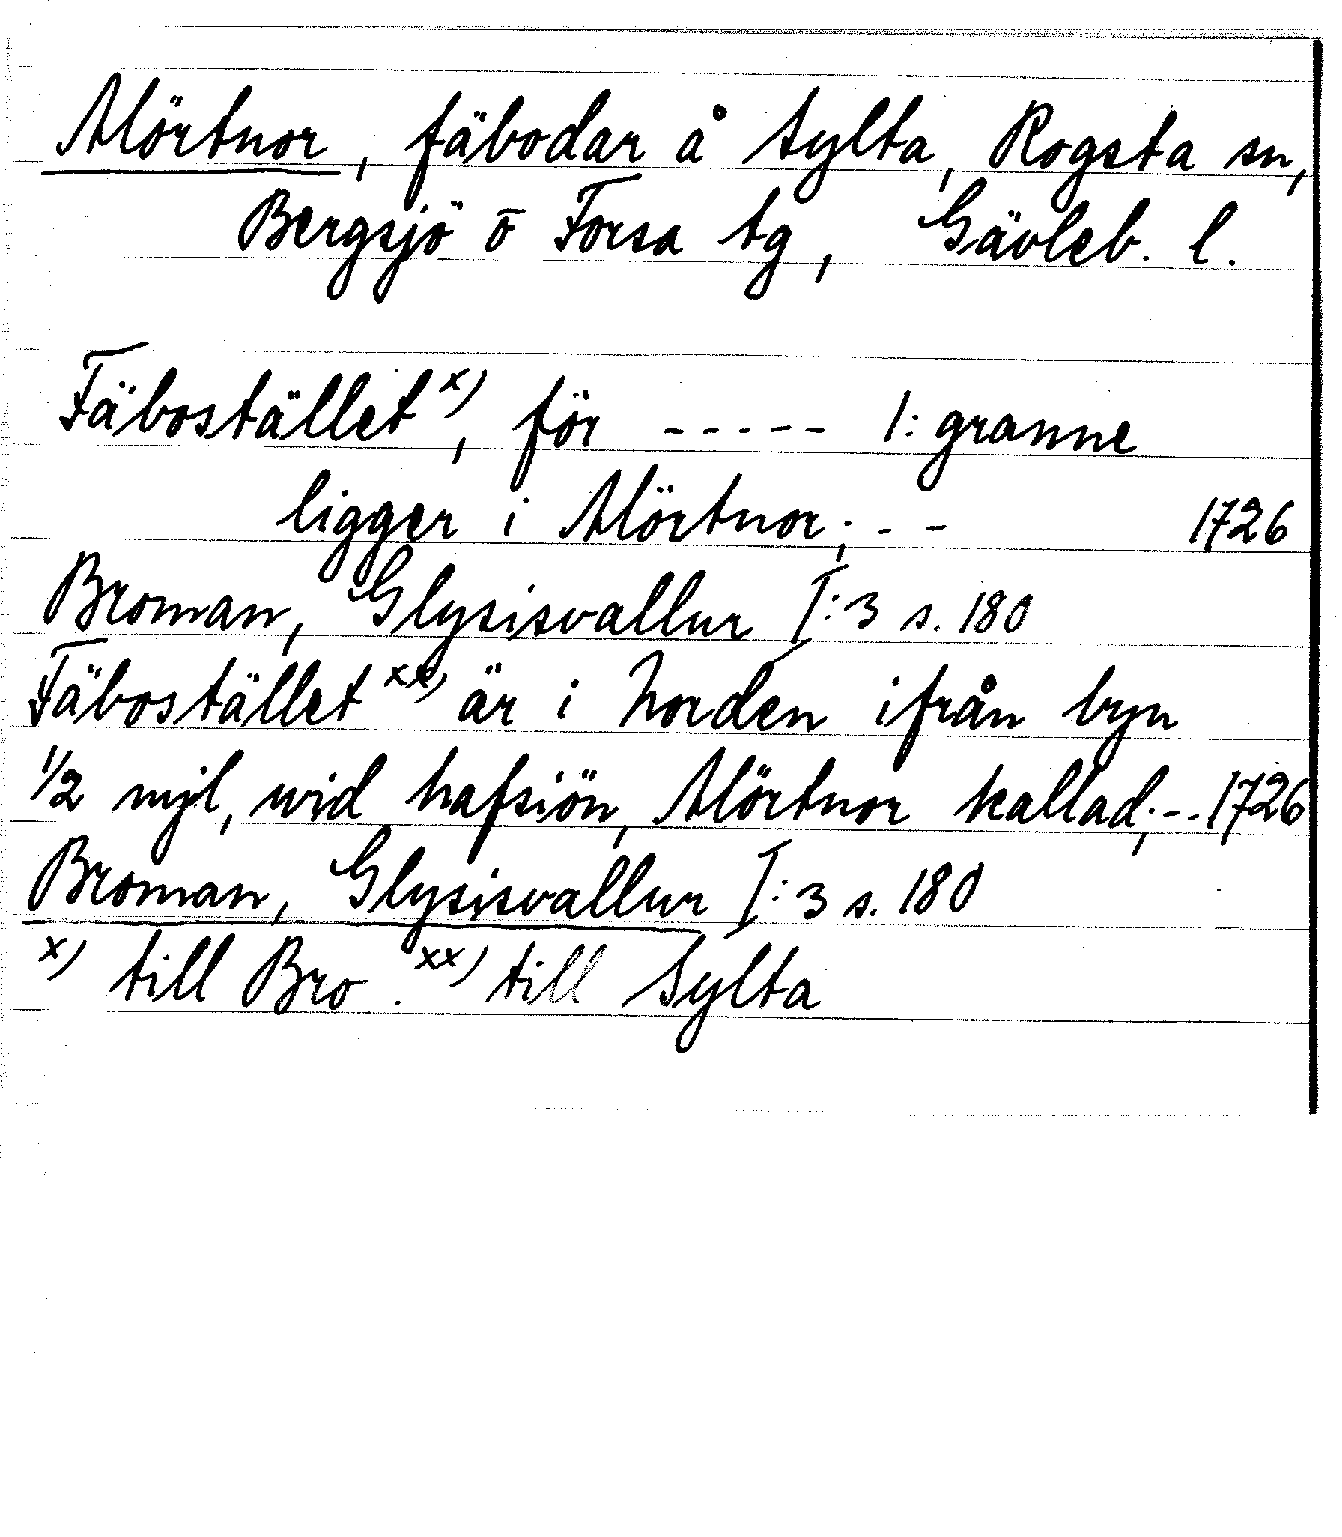 Mörtnor, fäbodar å Sylta, Rogsta sn,
Bergsjö o Forsa tg, Gävleb. l.
Fäbostället x), för ----- 1: granne
ligger i Mörtnor; -- 1726
Broman, Glysisvallur I:3 s. 180
Fäbostället xx) är i Norden ifrån byn
1/2 mjl, wid hafsiön, Mörtnor kallad; -- 1726
Broman, Glysisvallur I:3 s. 180
x) till Bro. xx) till Sylta